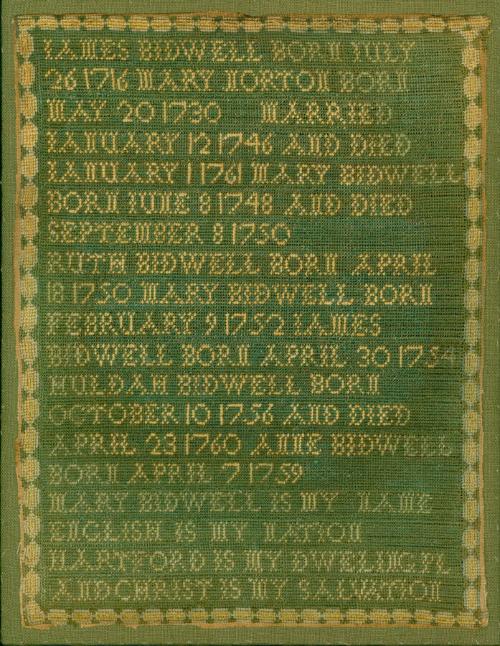 IAMES BIDWELL BORN IULY
26 1716 MARY NORTON BORN
MAY 20 1730 MARRIED
IANUARY 12 1746 AND DIED
IANUARY 1 1761 MARY BIDWELL
BORN IUNE 8 1748 AND DIED
SEPTEMBER 8 1750
RUTH BIDWELL BORN APRIL
18 1750 MARY BIDWELL BORN
FEBRUARY 9 1752 IAMES
BIDWELL BORN APRIL 30 1754
HULDAH BIDWELL BORN
OCTOBER 10 1756 AND DIED
APRIL 23 1760 ANNE BIDWELL
BORN APRIL 7 1759
MARY BIDWELL IS MY NAME
ENGLISH IS MY NATION
HARTFORD IS MY DWELING PL
AND CHRIST IS MY SALVATION